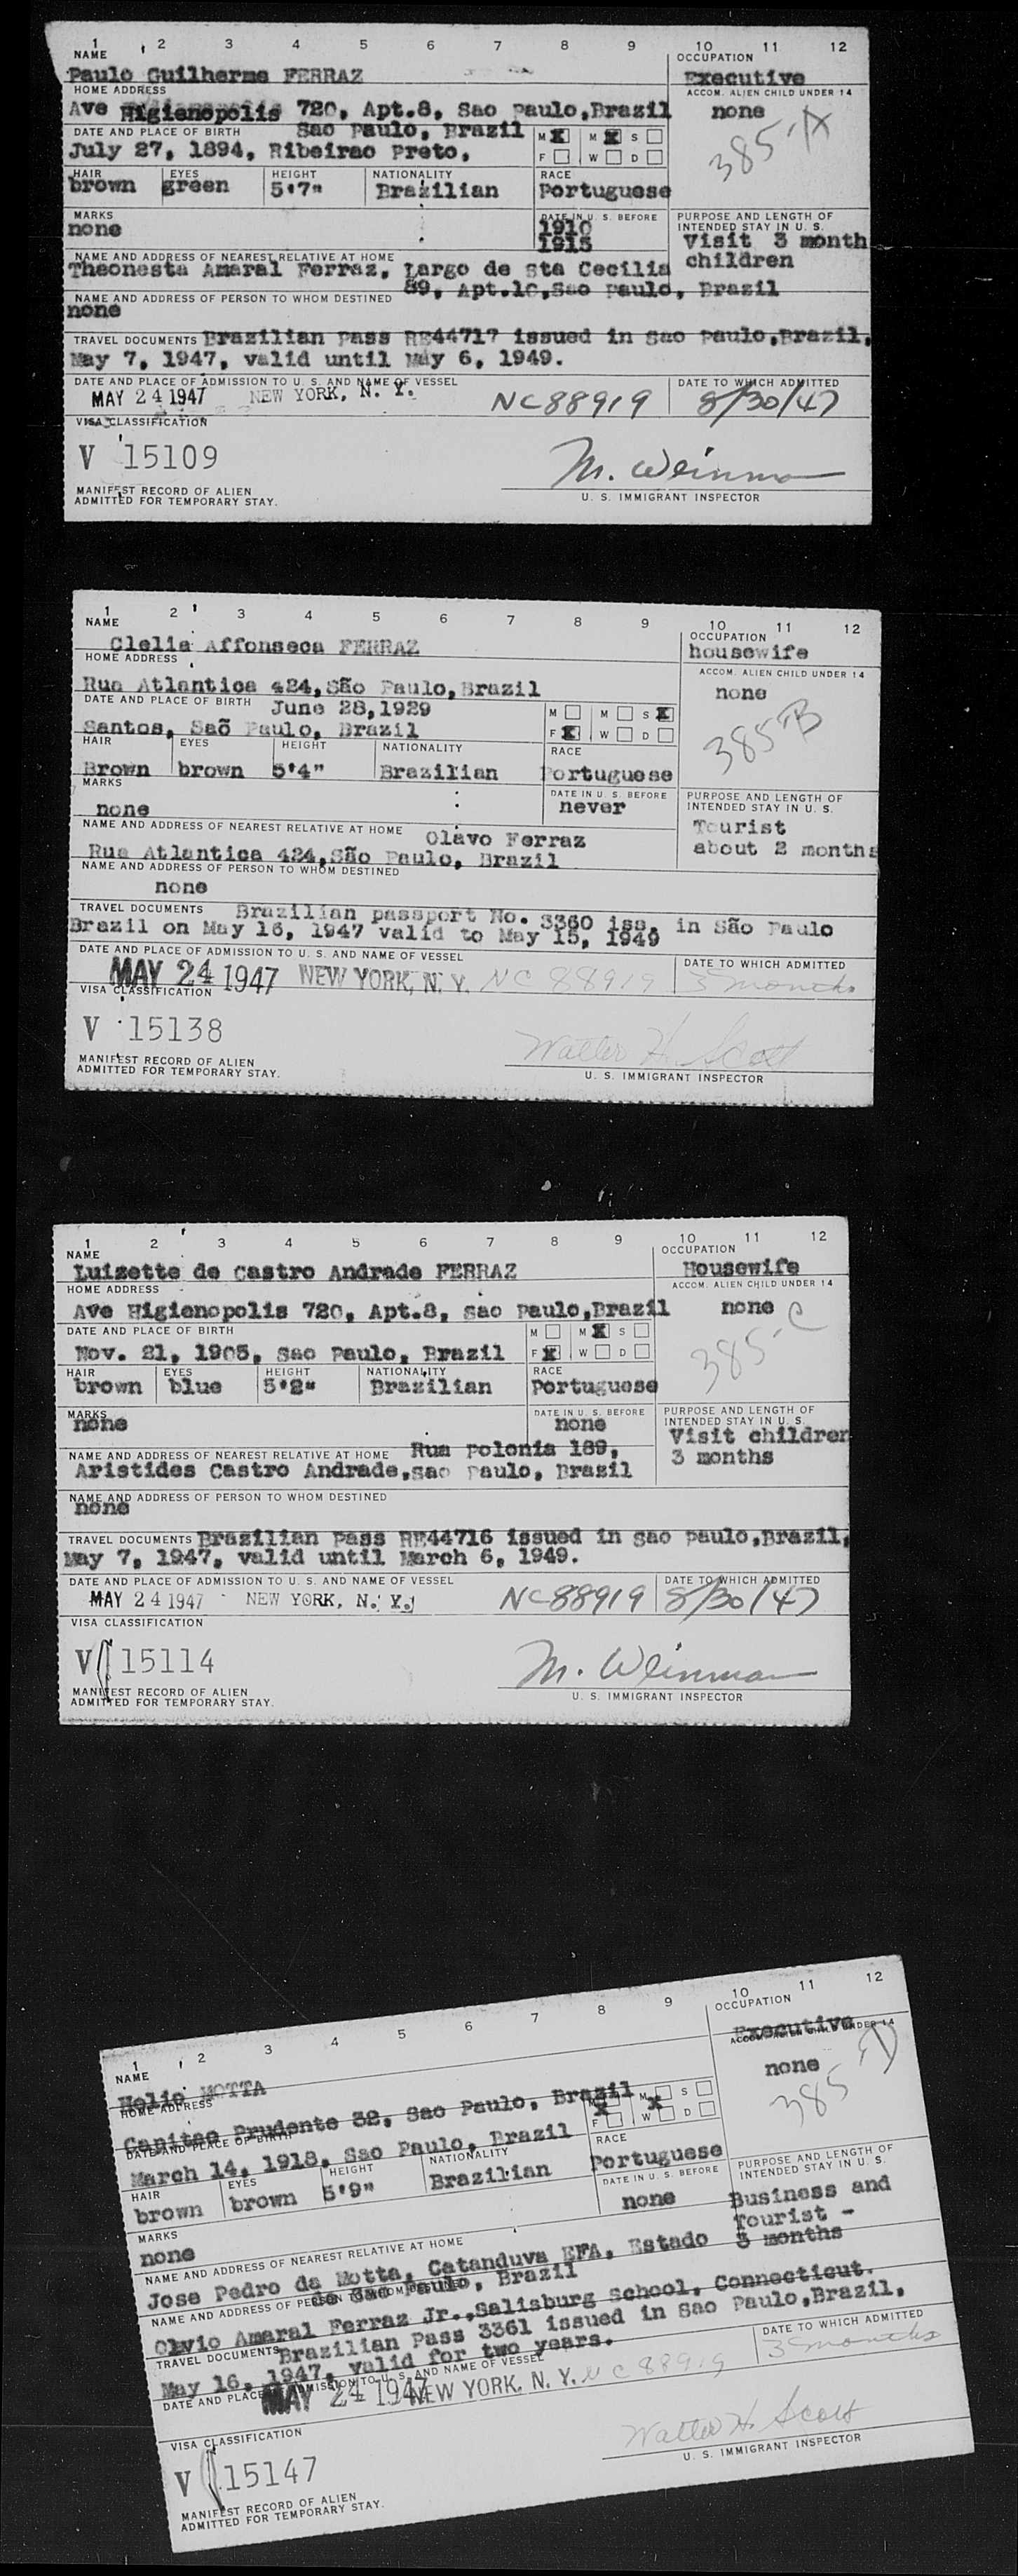 1 2 3 4 5 6 7 8 9 10 11 12
NAME OCCUPATION
Paulo Guilherme FERRAZ Executive
HOME ADDRESS ACCOM. ALIEN CHILD UNDER 14
Ave Higienopolis 720, Apt.8, Sao Paulo,Brazil none
DATE AND PLACE OF BIRTH Sao Paulo, Brazil M X M X S
July 27, 1894, Ribeirao Preto, F W D
385-A
HAIR EYES HEIGHT NATIONALITY RACE
brown green 5'7" Brazilian Portuguese
MARKS DATE IN U. S. BEFORE PURPOSE AND LENGTH OF
none 1910 INTENDED STAY IN U. S.
1915 Visit 3 month
NAME AND ADDRESS OF NEAREST RELATIVE AT HOME children
Theonesta Amaral Ferraz, Largo de Sta Cecilia
89, Apt.10,Sao Paulo, Brazil
NAME AND ADDRESS OF PERSON TO WHOM DESTINED
none
TRAVEL DOCUMENTS Brazilian Pass RE44717 issued in Sao Paulo,Brazil,
May 7, 1947, valid until May 6, 1949.
DATE AND PLACE OF ADMISSION TO U. S. AND NAME OF VESSEL DATE TO WHICH ADMITTED
MAY 24 1947 NEW YORK, N. Y. NC88919 8/30/47
VISA CLASSIFICATION
V 15109 M. Weinman
MANIFEST RECORD OF ALIEN
ADMITTED FOR TEMPORARY STAY. U. S. IMMIGRANT INSPECTOR
1 2 3 4 5 6 7 8 9 10 11 12
NAME OCCUPATION
Clelia Affonseca FERRAZ housewife
HOME ADDRESS ACCOM. ALIEN CHILD UNDER 14
Rua Atlantica 424,São Paulo,Brazil none
DATE AND PLACE OF BIRTH June 28,1929 M M S X
Santos, Saõ Paulo, Brazil F X W D
385-B
HAIR EYES HEIGHT NATIONALITY RACE
Brown brown 5'4" Brazilian Portuguese
MARKS DATE IN U. S. BEFORE PURPOSE AND LENGTH OF
none never INTENDED STAY IN U. S.
NAME AND ADDRESS OF NEAREST RELATIVE AT HOME Olavo Ferraz Tourist
Rua Atlantica 424,São Paulo, Brazil about 2 months
NAME AND ADDRESS OF PERSON TO WHOM DESTINED
none
TRAVEL DOCUMENTS Brazilian passport No. 3360 iss. in São Paulo
Brazil on May 16, 1947 valid to May 15, 1949
DATE AND PLACE OF ADMISSION TO U. S. AND NAME OF VESSEL DATE TO WHICH ADMITTED
MAY 24 1947 NEW YORK, N. Y. NC 88919 3 months
VISA CLASSIFICATION
V 15138 Walter H. Scott
MANIFEST RECORD OF ALIEN
ADMITTED FOR TEMPORARY STAY. U. S. IMMIGRANT INSPECTOR
1 2 3 4 5 6 7 8 9 10 11 12
NAME OCCUPATION
Luizette de Castro Andrade FERRAZ Housewife
HOME ADDRESS ACCOM. ALIEN CHILD UNDER 14
Ave Higienopolis 720, Apt.8, Sao Paulo,Brazil none
DATE AND PLACE OF BIRTH M M X S
Nov. 21, 1905, Sao Paulo, Brazil F X W D
385-C
HAIR EYES HEIGHT NATIONALITY RACE
brown blue 5'2" Brazilian Portuguese
MARKS DATE IN U. S. BEFORE PURPOSE AND LENGTH OF
none none INTENDED STAY IN U. S.
Visit children
NAME AND ADDRESS OF NEAREST RELATIVE AT HOME Rua Polonia 189, 3 months
Aristides Castro Andrade,Sao Paulo, Brazil
NAME AND ADDRESS OF PERSON TO WHOM DESTINED
none
TRAVEL DOCUMENTS Brazilian Pass RE44716 issued in Sao Paulo,Brazil,
May 7, 1947, valid until March 6, 1949.
DATE AND PLACE OF ADMISSION TO U. S. AND NAME OF VESSEL DATE TO WHICH ADMITTED
MAY 24 1947 NEW YORK, N. Y. NC88919 8/30/47
VISA CLASSIFICATION
V 15114 M. Weinman
MANIFEST RECORD OF ALIEN
ADMITTED FOR TEMPORARY STAY. U. S. IMMIGRANT INSPECTOR
1 2 3 4 5 6 7 8 9 10 11 12
NAME OCCUPATION
Helio MOTTA Executive
HOME ADDRESS ACCOM. ALIEN CHILD UNDER 14
Capitao Prudente 32, Sao Paulo, Brazil none
DATE AND PLACE OF BIRTH M X M X S
March 14, 1918, Sao Paulo, Brazil F W D
385-D
HAIR EYES HEIGHT NATIONALITY RACE
brown brown 5'9" Brazilian Portuguese
MARKS DATE IN U. S. BEFORE PURPOSE AND LENGTH OF
none none INTENDED STAY IN U. S.
Business and
Tourist -
3 months
NAME AND ADDRESS OF NEAREST RELATIVE AT HOME
Jose Pedro da Motta, Catanduva EFA, Estado
de Sao Paulo, Brazil
NAME AND ADDRESS OF PERSON TO WHOM DESTINED
Olvio Amaral Ferraz Jr.,Salisburg School, Connecticut.
TRAVEL DOCUMENTS Brazilian Pass 3361 issued in Sao Paulo,Brazil,
May 16, 1947, valid for two years.
DATE AND PLACE OF ADMISSION TO U. S. AND NAME OF VESSEL DATE TO WHICH ADMITTED
MAY 24 1947 NEW YORK, N. Y. NC 88919 3 months
VISA CLASSIFICATION
V 15147 Walter H. Scott
MANIFEST RECORD OF ALIEN
ADMITTED FOR TEMPORARY STAY. U. S. IMMIGRANT INSPECTOR